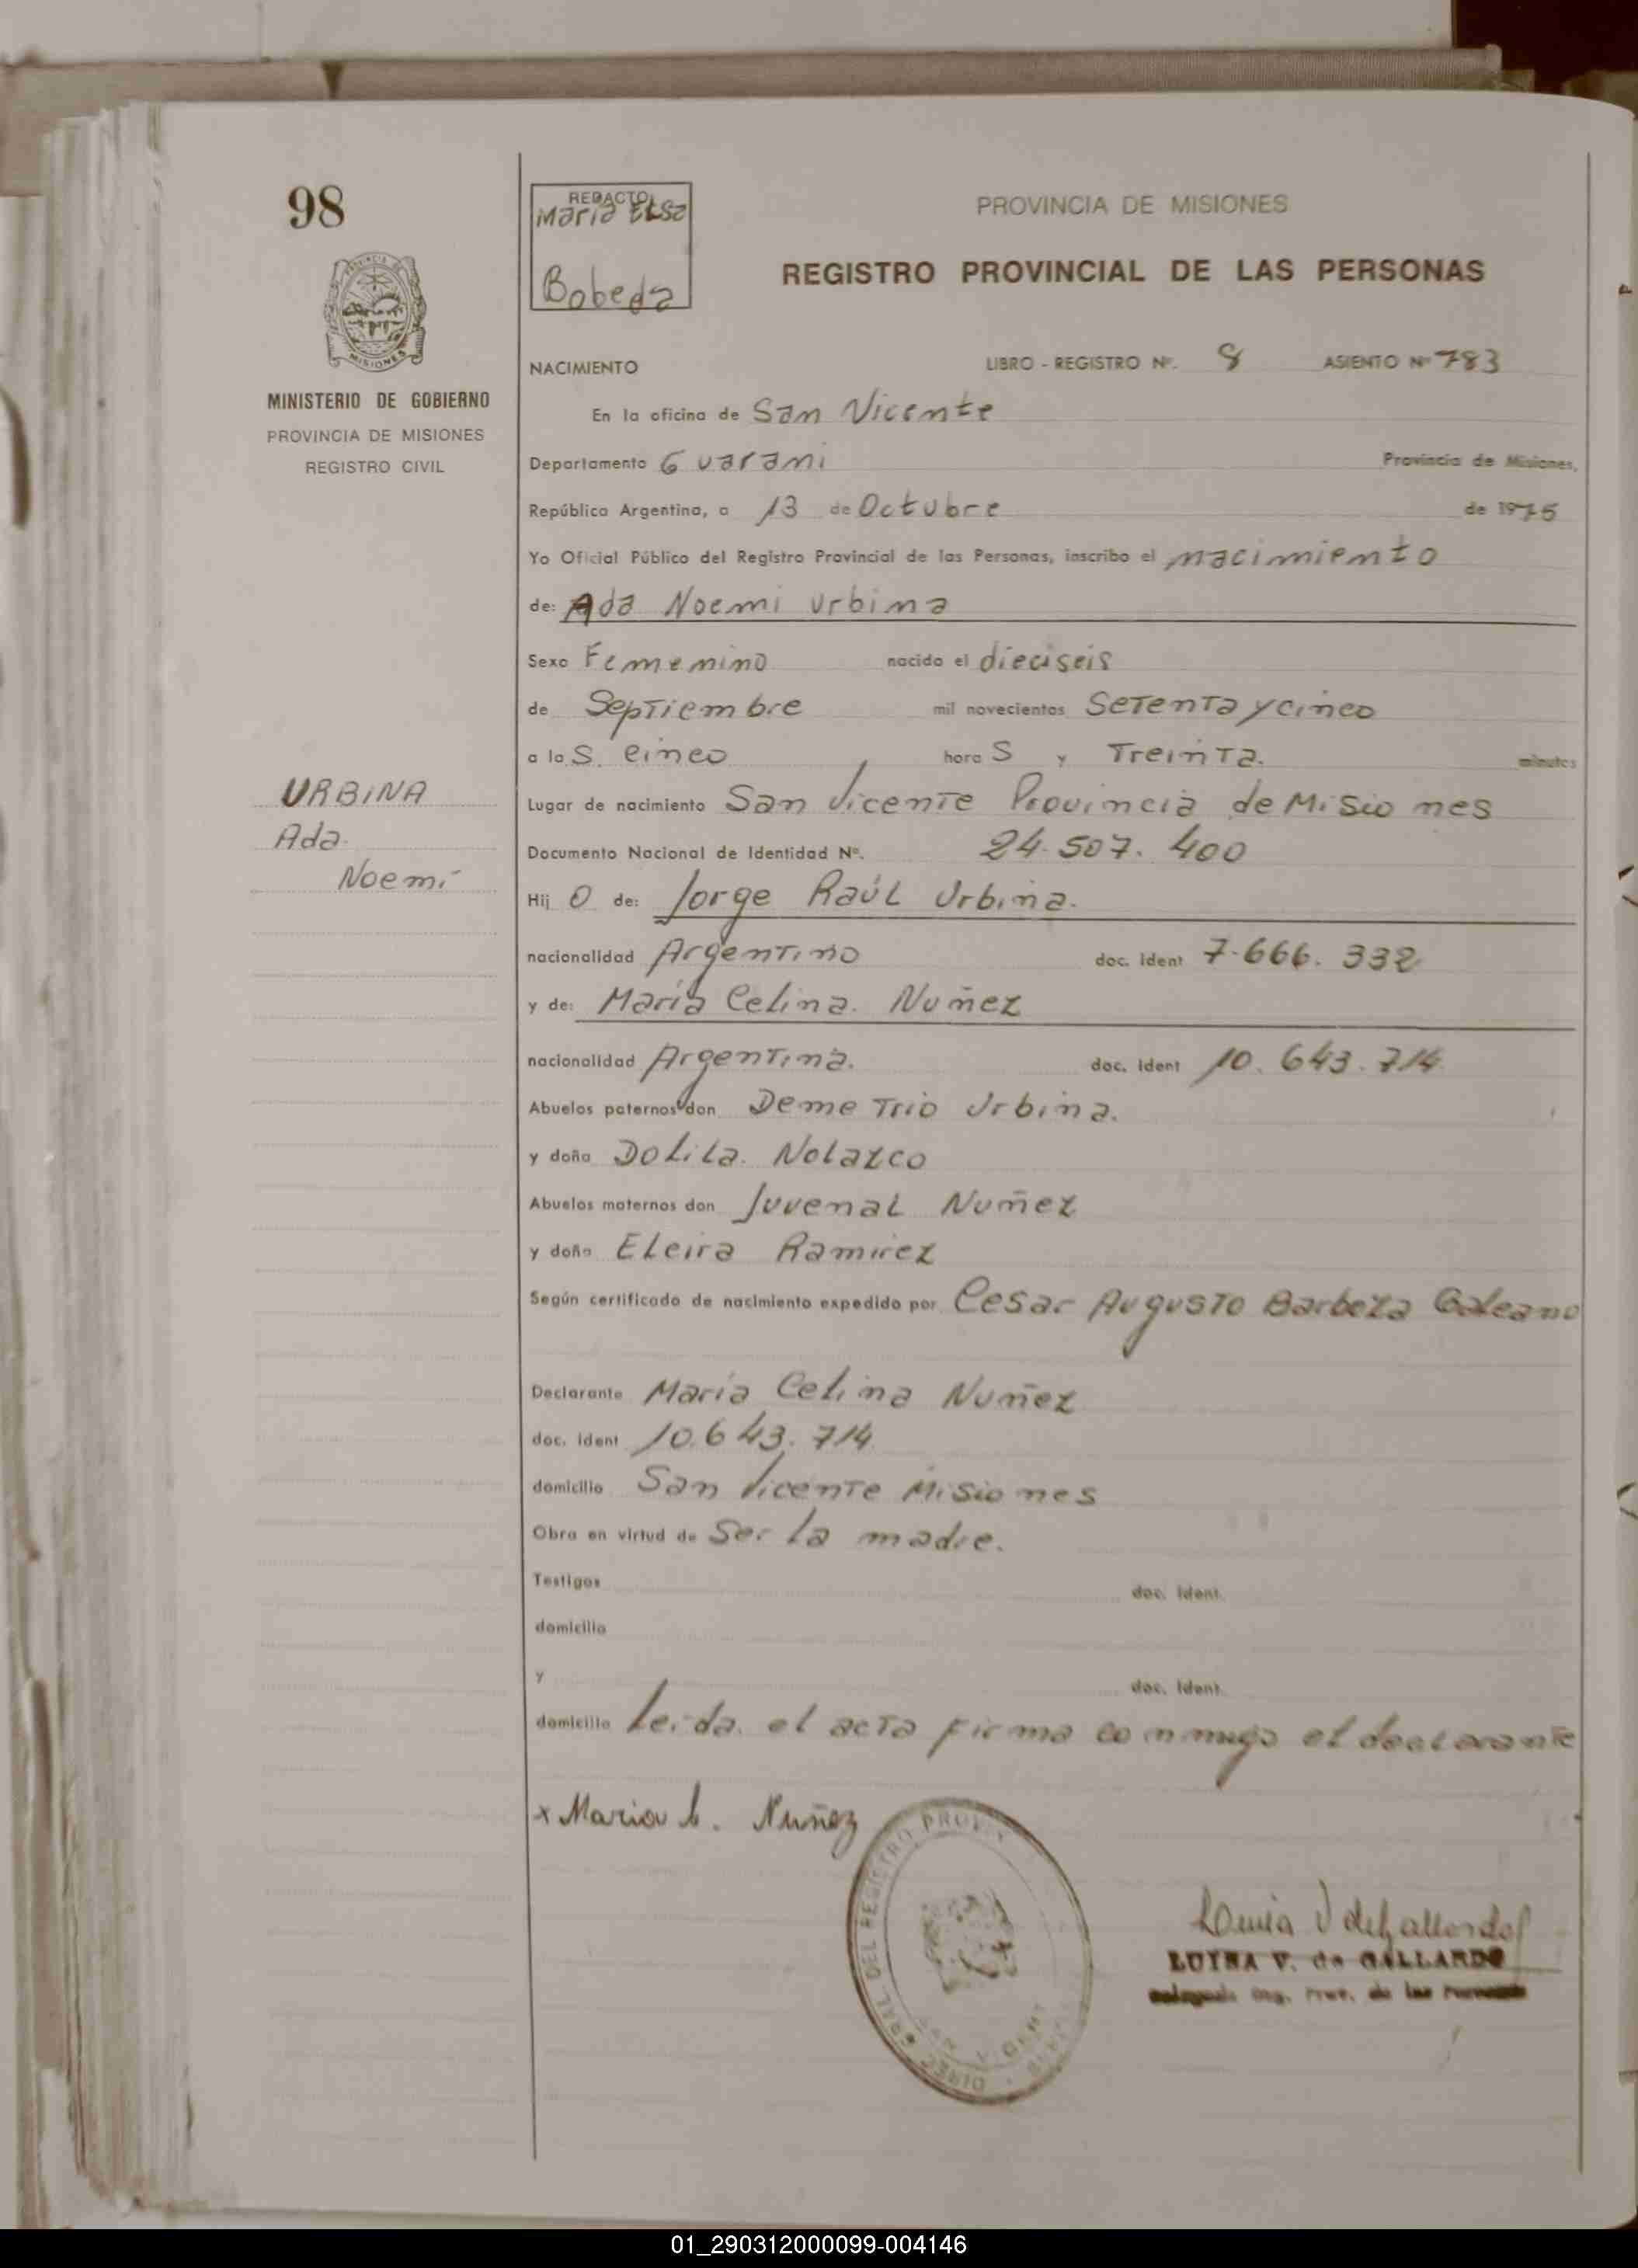 98
REDACTO
Maria Elsa
Bobeda
PROVINCIA DE MISIONES
REGISTRO PROVINCIAL DE LAS PERSONAS
MINISTERIO DE GOBIERNO
PROVINCIA DE MISIONES
REGISTRO CIVIL
NACIMIENTO LIBRO - REGISTRO Nº. 8 ASIENTO Nº 783
En la oficina de San Vicente
Departamento Guarani Provincia de Misiones,
República Argentina, a 13 de Octubre de 1975
Yo Oficial Público del Registro Provincial de las Personas, inscribo el nacimiento
de: Ada Noemi Urbina
Sexo Femenino nacido el dieciseis
de Septiembre mil novecientos Setenta y cinco
a la S. cinco hora S y Treinta. minutos
URBINA
Ada
Noemí
Lugar de nacimiento San Vicente Provincia de Misiones
Documento Nacional de Identidad Nº. 24.507.400
Hij O de: Jorge Raúl Urbina.
nacionalidad Argentino doc. ident 7.666.332
y de: María Celina. Nuñez
nacionalidad Argentina. doc. ident 10.643.714
Abuelos paternos don Demetrio Urbina.
y doña Dolila. Nolazco
Abuelos maternos don Juvenal Nuñez
y doña Eleira Ramirez
Según certificado de nacimiento expedido por Cesar Augusto Barboza Galeano
Declarante María Celina Nuñez
doc. ident 10.643.714
domicilio San Vicente Misiones
Obra en virtud de Ser la madre.
Testigos doc. ident.
domicilio
y doc. ident.
domicilio Leida el acta firma conmigo el declarante
x Maria C. Nuñez
DIREC. GRAL. DEL REGISTRO PROV.
SAN VICENTE
LUISA V. de GALLARDO
01_290312000099-004146